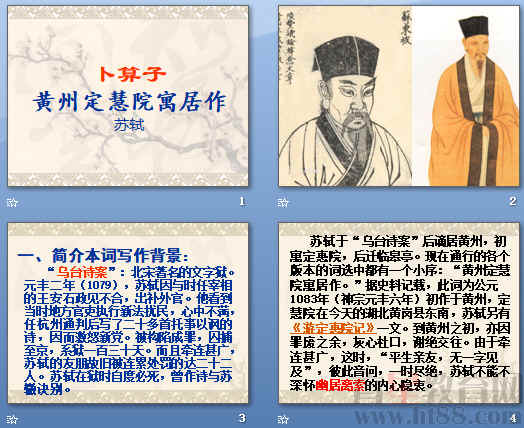 卜算子
黄州定慧院寓居作
苏轼
1
蘇東坡
2
一、简介本词写作背景：
“乌台诗案”：北宋著名的文字狱。
元丰二年（1079），苏轼因与时任宰相
的王安石政见不合，出补外官。他看到
当时地方官吏执行新法扰民，心中不满，
任杭州通判后写了二十多首托事以讽的
诗，因而激怒新党。被构陷成罪，囚捕
至京，系狱一百三十天。而且牵连甚广，
苏轼的友朋故旧被连累处罚的达二十二
人。苏轼在狱时自度必死，曾作诗与苏
辙诀别。
3
苏轼于“乌台诗案”后谪居黄州，初
寓定惠院，后迁临皋亭。现在通行的各个
版本的词选中都有一个小序：“黄州定慧
院寓居作。”据史料记载，此词为公元
1083年（神宗元丰六年）初作于黄州，定
慧院在今天的湖北黄岗县东南，苏轼另有
《游定惠院记》一文。到黄州之初，亦因
罪废之余，灰心杜口，谢绝交往。由于牵
连甚广，这时，“平生亲友，无一字见
及”，彼此音问，一时尽绝，苏轼不能不
深怀幽居离索的内心隐衷。
4
www.ht88.com